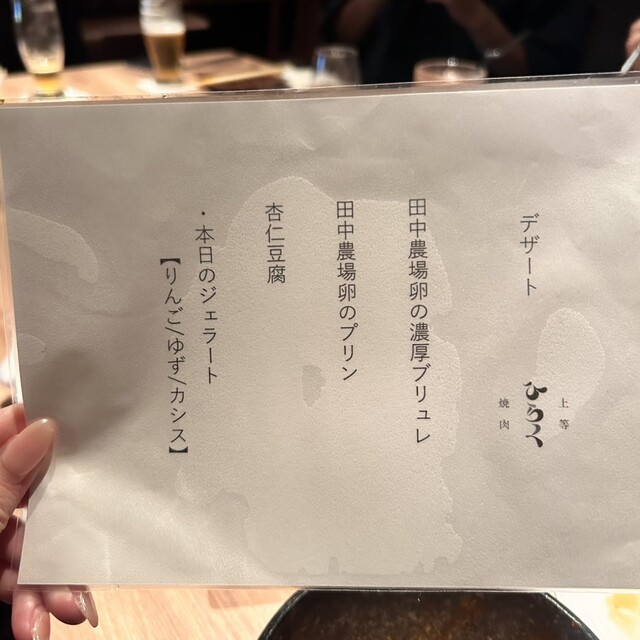 デザート
上等
焼肉
ひらく
田中農場卵の濃厚ブリュレ
田中農場卵のプリン
杏仁豆腐
・本日のジェラート
【りんご/ゆず/カシス】